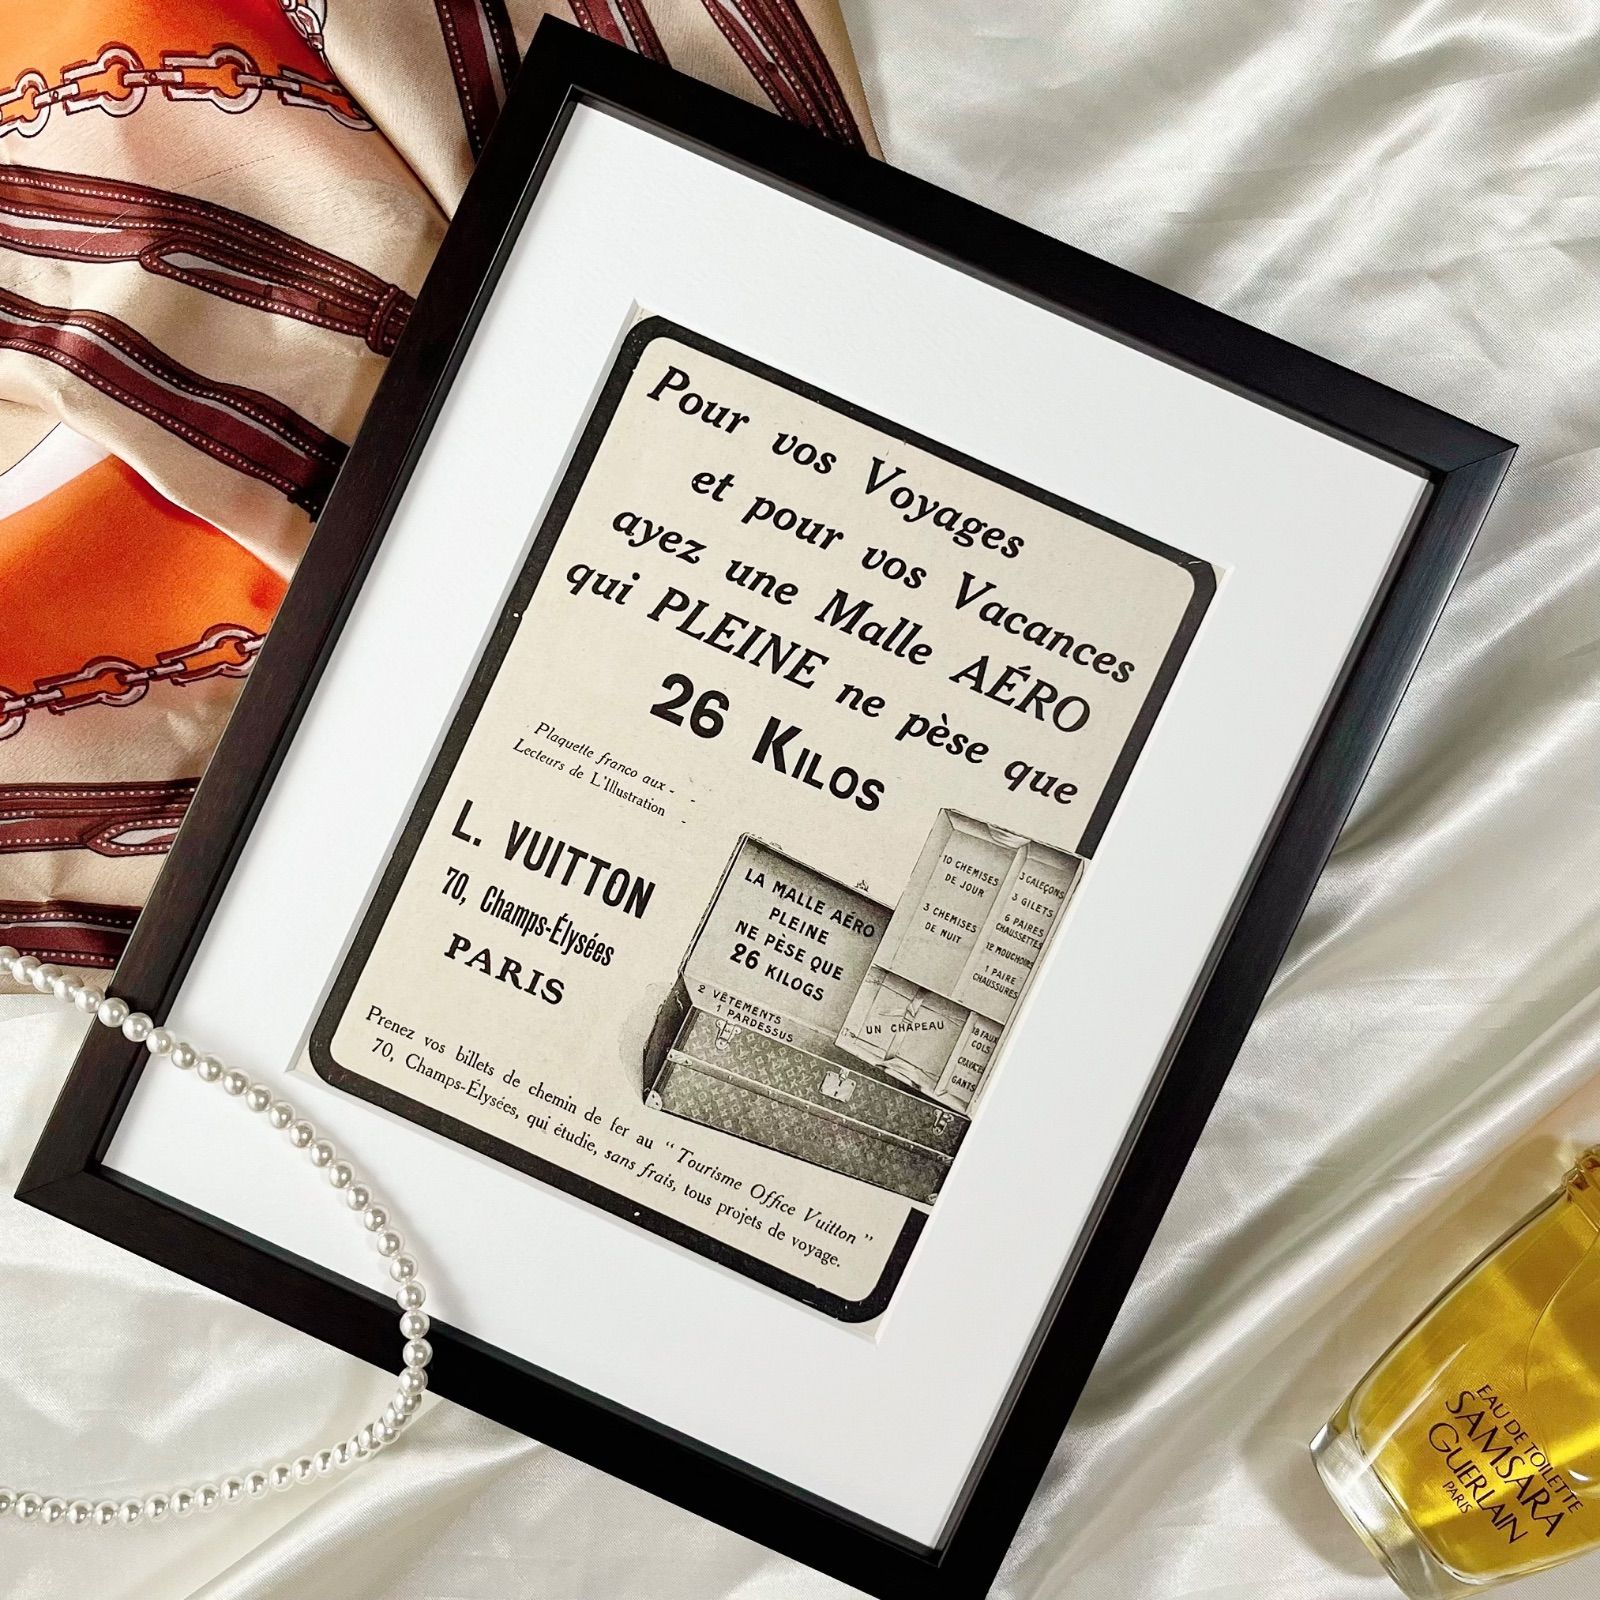 Pour vos Voyages
et pour vos Vacances
ayez une Malle AÉRO
qui PLEINE ne pèse que
26 KILOS
Plaquette franco aux - -
Lecteurs de L'Illustration -
L. VUITTON
70, Champs-Élysées
PARIS
LA MALLE AÉRO
PLEINE
NE PÈSE QUE
26 KILOGS
2 VÊTEMENTS
1 PARDESSUS
10 CHEMISES
DE JOUR
3 CHEMISES
DE NUIT
3 CALEÇONS
3 GILETS
6 PAIRES
CHAUSSETTES
12 MOUCHOIRS
1 PAIRE
CHAUSSURES
UN CHAPEAU
18 FAUX
COLS
CRAVATES
GANTS
Prenez vos billets de chemin de fer au "Tourisme Office Vuitton"
70, Champs-Élysées, qui étudie, sans frais, tous projets de voyage.
EAU DE TOILETTE
SAMSARA
GUERLAIN
PARIS